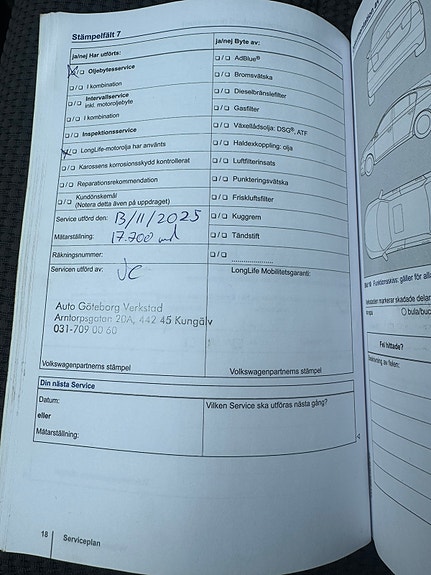 Stämpelfält 7
ja/nej Har utförts:
Oljebytesservice
I kombination
Intervallservice
inkl. motoroljebyte
I kombination
Inspektionsservice
LongLife-motorolja har använts
Karossens korrosionsskydd kontrollerat
Reparationsrekommendation
Kundönskemål
(Notera detta även på uppdraget)
Service utförd den: 13/11/2025
Mätarställning: 17.700 mil
Räkningsnummer:
Servicen utförd av: JC
Auto Göteborg Verkstad
Arntorpsgatan 20A, 442 45 Kungälv
031-709 00 60
Volkswagenpartnerns stämpel
ja/nej Byte av:
AdBlue®
Bromsvätska
Dieselbränslefilter
Gasfilter
Växellådsolja: DSG®, ATF
Haldexkoppling: olja
Luftfilterinsats
Punkteringsvätska
Friskluftsfilter
Kuggrem
Tändstift
LongLife Mobilitetsgaranti:
Volkswagenpartnerns stämpel
Din nästa Service
Datum:
eller
Mätarställning:
Vilken Service ska utföras nästa gång?
18 Serviceplan
Funktionsskiss: gäller för alla
markerar skadade delar
bula/buc
Fel hittade?
av felen: